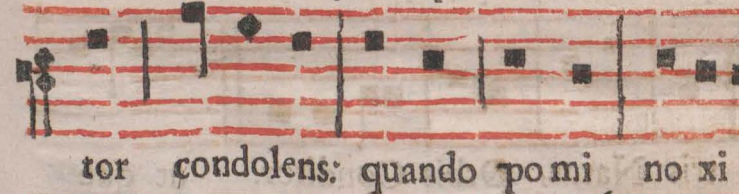 tor condolens: quando po mi no xi